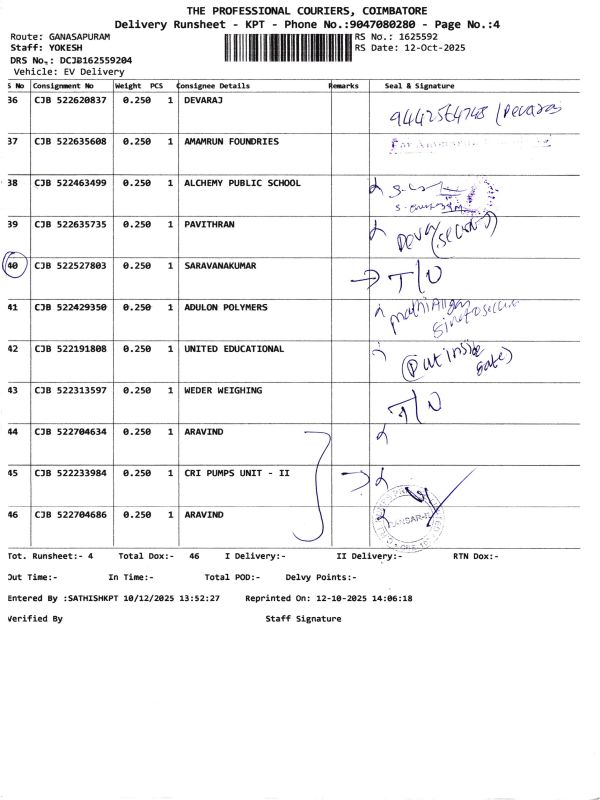 THE PROFESSIONAL COURIERS, COIMBATORE
Delivery Runsheet - KPT - Phone No.:9047080280 - Page No.:4
Route: GANASAPURAM RS No.: 1625592
Staff: YOKESH RS Date: 12-Oct-2025
DRS No.: DCJB162559204
Vehicle: EV Delivery
S No Consignment No Weight PCS Consignee Details Remarks Seal & Signature
36 CJB 522620837 0.250 1 DEVARAJ
37 CJB 522635608 0.250 1 AMAMRUN FOUNDRIES
38 CJB 522463499 0.250 1 ALCHEMY PUBLIC SCHOOL
39 CJB 522635735 0.250 1 PAVITHRAN Deva (security)
40 CJB 522527803 0.250 1 SARAVANAKUMAR → T/N
41 CJB 522429350 0.250 1 ADULON POLYMERS
42 CJB 522191808 0.250 1 UNITED EDUCATIONAL (Put inside gate)
43 CJB 522313597 0.250 1 WEDER WEIGHING T/N
44 CJB 522704634 0.250 1 ARAVIND
45 CJB 522233984 0.250 1 CRI PUMPS UNIT - II
46 CJB 522704686 0.250 1 ARAVIND
Tot. Runsheet:- 4 Total Dox:- 46 I Delivery:- II Delivery:- RTN Dox:-
Out Time:- In Time:- Total POD:- Delvy Points:-
Entered By :SATHISHKPT 10/12/2025 13:52:27 Reprinted On: 12-10-2025 14:06:18
Verified By Staff Signature